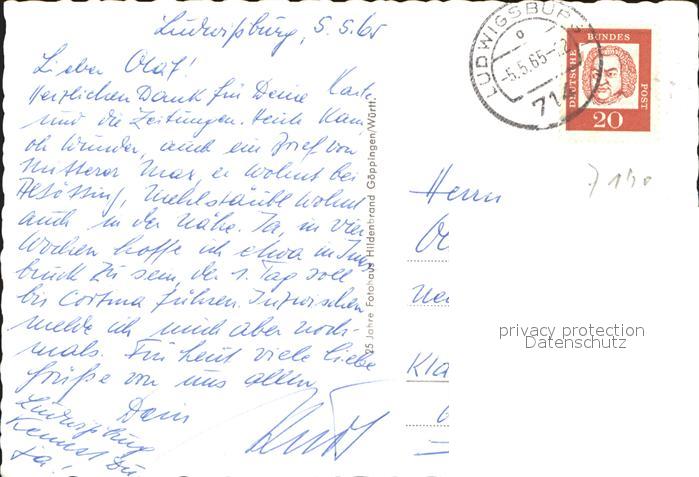 Ludwigsburg, 5.5.65
Lieber Olaf!
Herzlichen Dank für Deine Karte
und die Zeitungen. Heute kam,
oh Wunder, auch ein Brief von
Mitterer Max, er wohnt bei
, wohnt
auch in der Nähe. Ja, in vier
Wochen hoffe ich etwa in Inns-
bruck zu sein, der 1. Tag soll
bis Cortina führen. Inzwischen
melde ich mich aber noch-
mals. Für heut viele liebe
Grüße von uns allen
Dein
Ludwigsburg
Kennst Du
ja!
25 Jahre Fotohaus Hildenbrand Göppingen/Württ.
LUDWIGSBURG
-5.5.65-
714
DEUTSCHE BUNDES POST
20
Herrn
Kla
privacy protection
Datenschutz